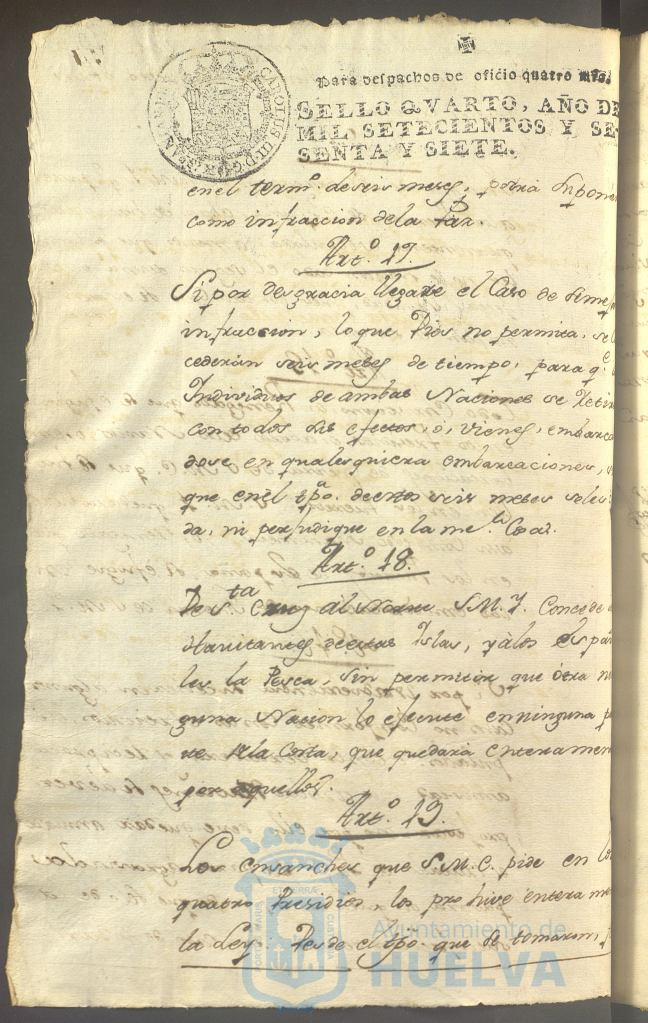 CAROLUS III D G
Para despachos de oficio quatro mrs.
SELLO QVARTO, AÑO DE
MIL SETECIENTOS Y SE-
SENTA Y SIETE.
en el term.º de seis meses, podrá
como infraccion de la Paz.
Art.º 17.
Si por desgracia llegare el Caso de
infraccion, lo que Dios no permita, se
cederán seis meses de tiempo, para q.e
Individuos de ambas Naciones se
con todos sus efectos, ó, vienes, embarca
dose, en qualesquiera embarcaciones,
que en el tpo. de estos seis meses
da, ni perjudique en la
Art.º 18.
De S.ta Cruz al Norte S. M. I. Concede
Havitantes de estas Islas, y á los Espa
les la Pesca, sin permitir que ótra
guna Nacion lo ejecute en ninguna
de la Costa, que quedará enteramen
por aquellos.
Art.º 19.
Los ensanches que S. M. C. pide en los
quatro Presidios, los prohive entera
la Ley. Desde el tpo. que se tomaron,
Ayuntamiento de
HUELVA